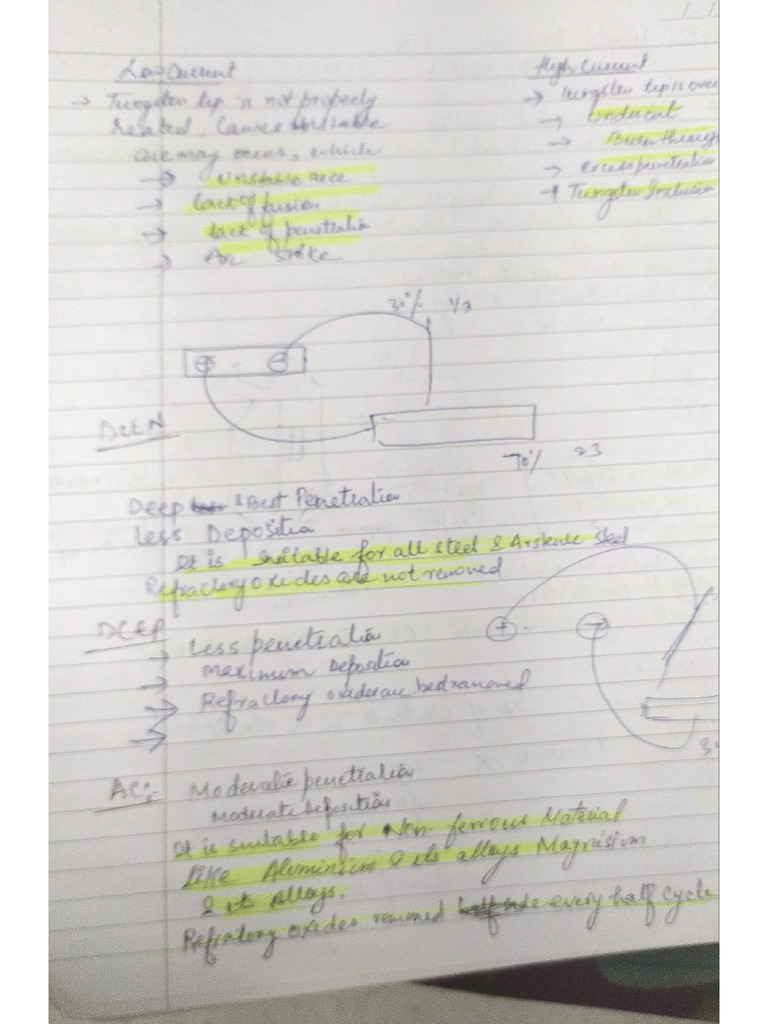 Low Current
→ Tungsten tip is not properly
Heated, Causes Unstable
arc may occurs, which
→ Unstable arc
→ lack of fusion
→ lack of penetration
→ Arc Strike
High Current
→ Tungsten tip is over
→ Undercut
→ Burn throug
→ Excess penetration
→ Tungsten Inclusion
30% 1/3
+ -
DCEN
70% 23
Deep & Best Penetration
Less Deposition
It is Suitable for all steel & Steel
Refractory oxides are not removed
DCEP
→ Less penetration
→ Maximum Deposition
→ Refractory oxides are best removed
→
+ -
3
AC:- Moderate penetration
Moderate Deposition
It is suitable for Non-ferrous Material
like Aluminium & its alloys Magnisium
& it Alloys.
Refratory oxides removed every half cycle